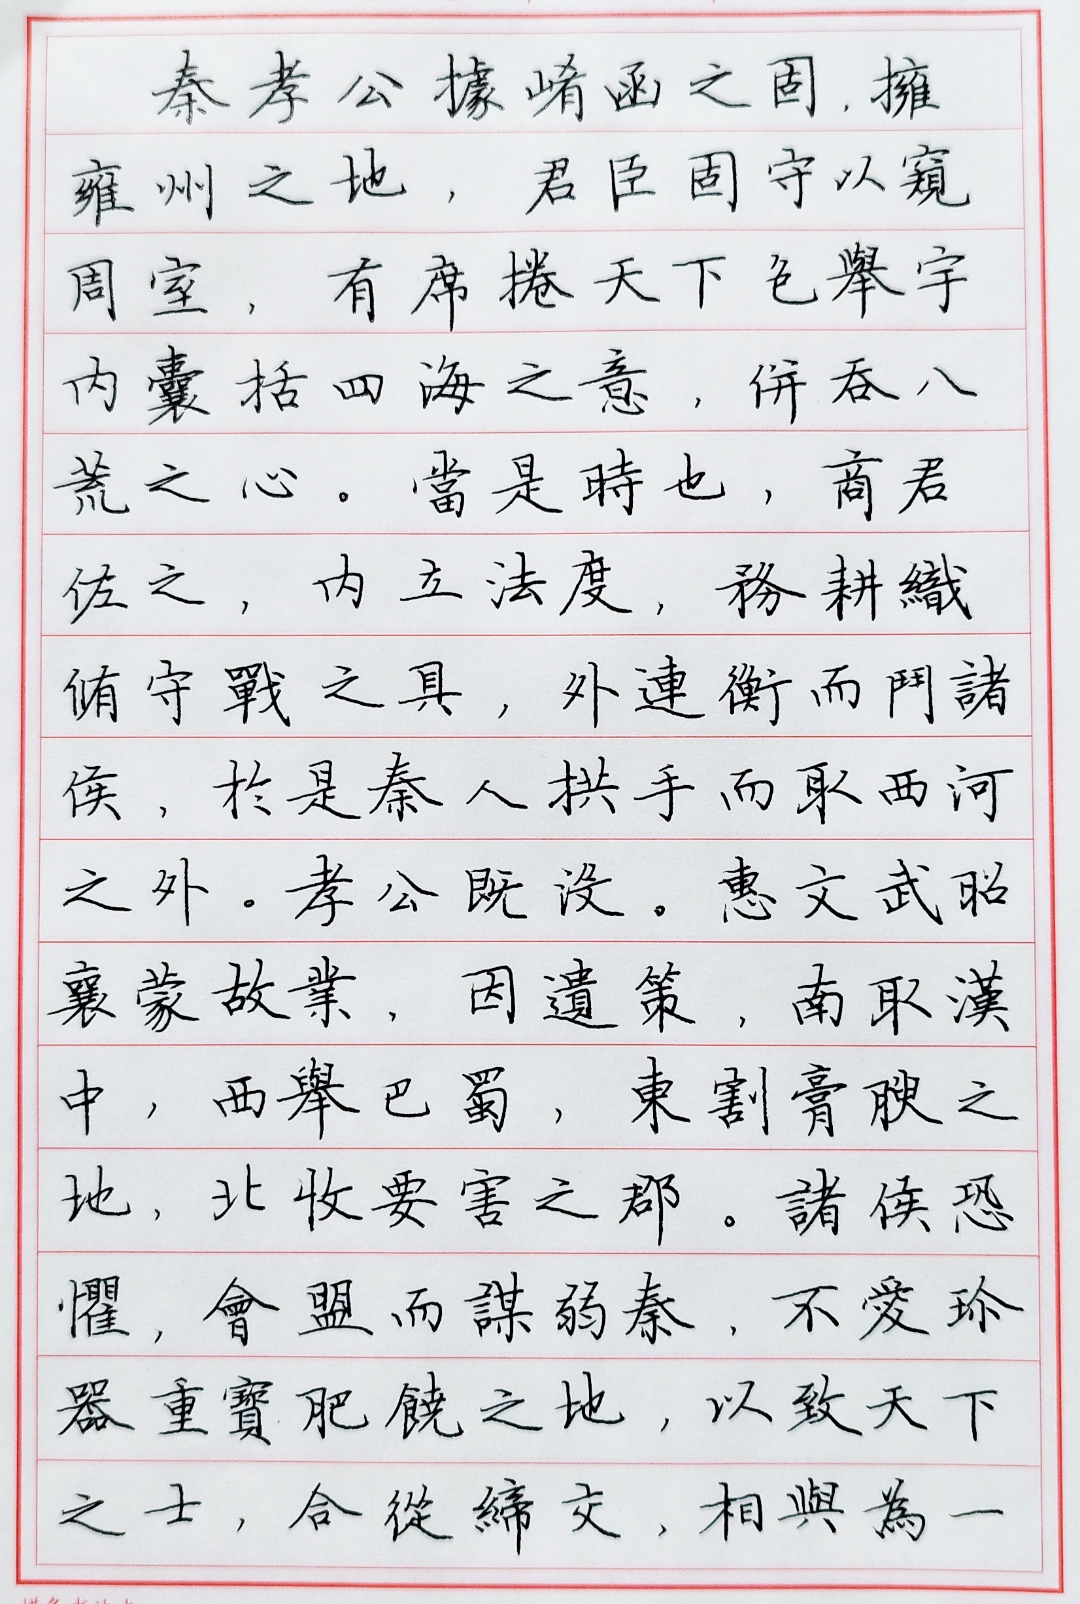 秦孝公據崤函之固，擁
雍州之地，君臣固守以窺
周室，有席捲天下包舉宇
内囊括四海之意，併吞八
荒之心。當是時也，商君
佐之，内立法度，務耕織
脩守戰之具，外連衡而鬥諸
侯，於是秦人拱手而取西河
之外。孝公既没。惠文武昭
襄蒙故業，因遺策，南取漢
中，西舉巴蜀，東割膏腴之
地，北收要害之郡。諸侯恐
懼，會盟而謀弱秦，不愛珍
器重寶肥饒之地，以致天下
之士，合從締交，相與為一